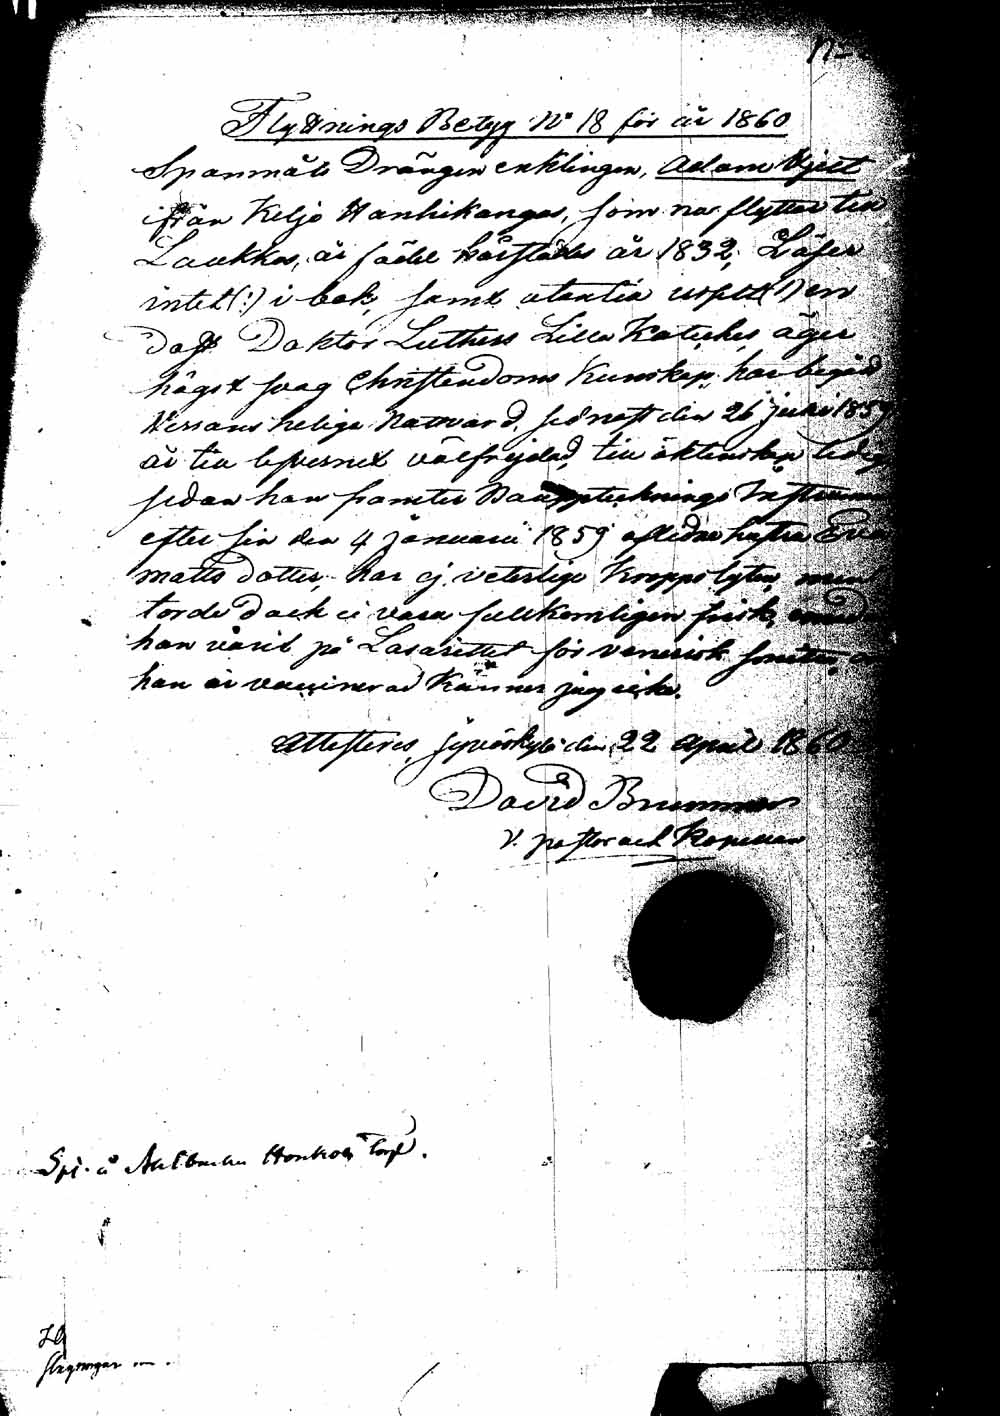 No
Flyttnings Betyg No 18 för år 1860
Spanmåls Drängen enklingen, Adam Hjelt
ifrån Keljo Hanhikangas, som nu flyttar till
Laukkas, är född härstädes år 1832, Läser
intet (:) i bok, samt utantill
Doktor Luthers Lilla Kateches, äger
högst svag Christendoms Kunskap, har begått
Herrans heliga Nattvard, sednast den 26 Juni 1859
är till lefvernet välfrejdad, till äktenskap ledig
sedan han framter Boupptecknings Instrument
efter sin den 4 Januarii 1859 aflidna hustru Erica
Matts dotter, har ej veterliga Kroppslyten, men
torde dock ej vara fullkomligen frisk, emedan
han varit på Lasarettet för venerisk smitta,
han är vaccinerad Känner jag icke.
Attesteras, Jyväskylä den 22 April 1860
David Brummer
V. pastor och Kapellan
Spi. å Honkola Torp.